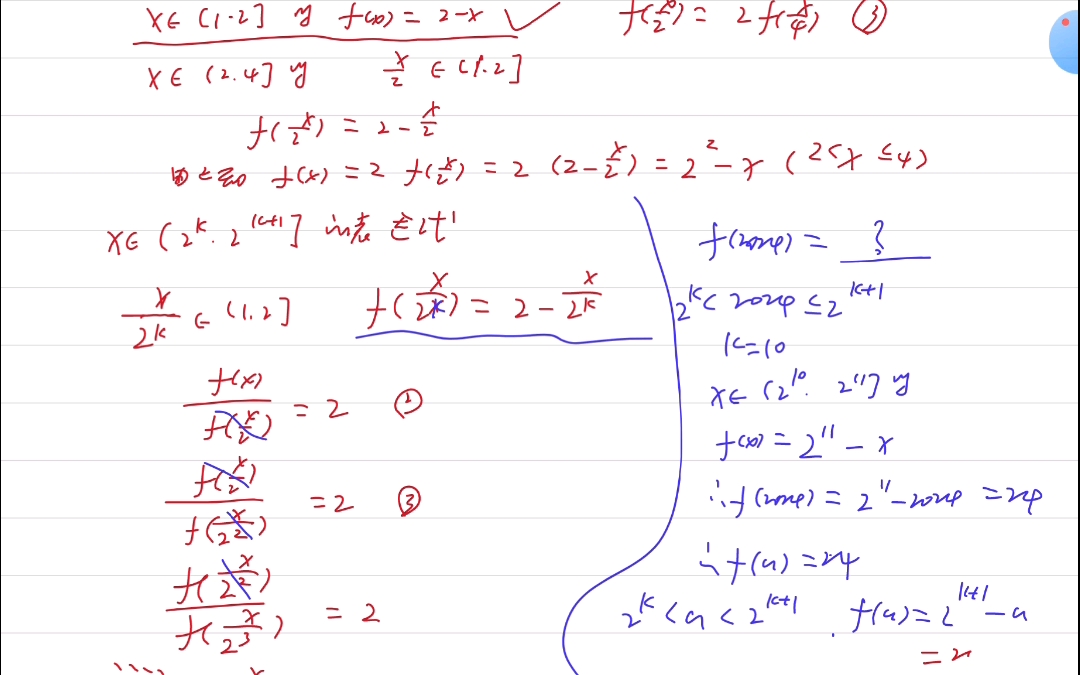 x∈(1.2] 时 f(x)=2-x ✓
f(x/2)=2f(x/4) ③
x∈(2.4] 时 x/2∈(1.2]
f(x/2)=2-x/2
由上知 f(x)=2f(x/2)=2(2-x/2)=2²-x (2<x≤4)
x∈(2^k.2^(k+1)]
x/2^k∈(1.2] f(x/2^k)=2-x/2^k
f(x)/f(x/2)=2
f(x/2)/f(x/2²)=2
f(x/2²)/f(x/2³)=2
f(2024)=?
2^k<2024≤2^(k+1)
k=10
x∈(2^10.2^11]时
f(x)=2^11-x
∴f(2024)=2^11-2024=24
∴f(a)=24
2^k<a<2^(k+1). f(a)=2^(k+1)-a
=2